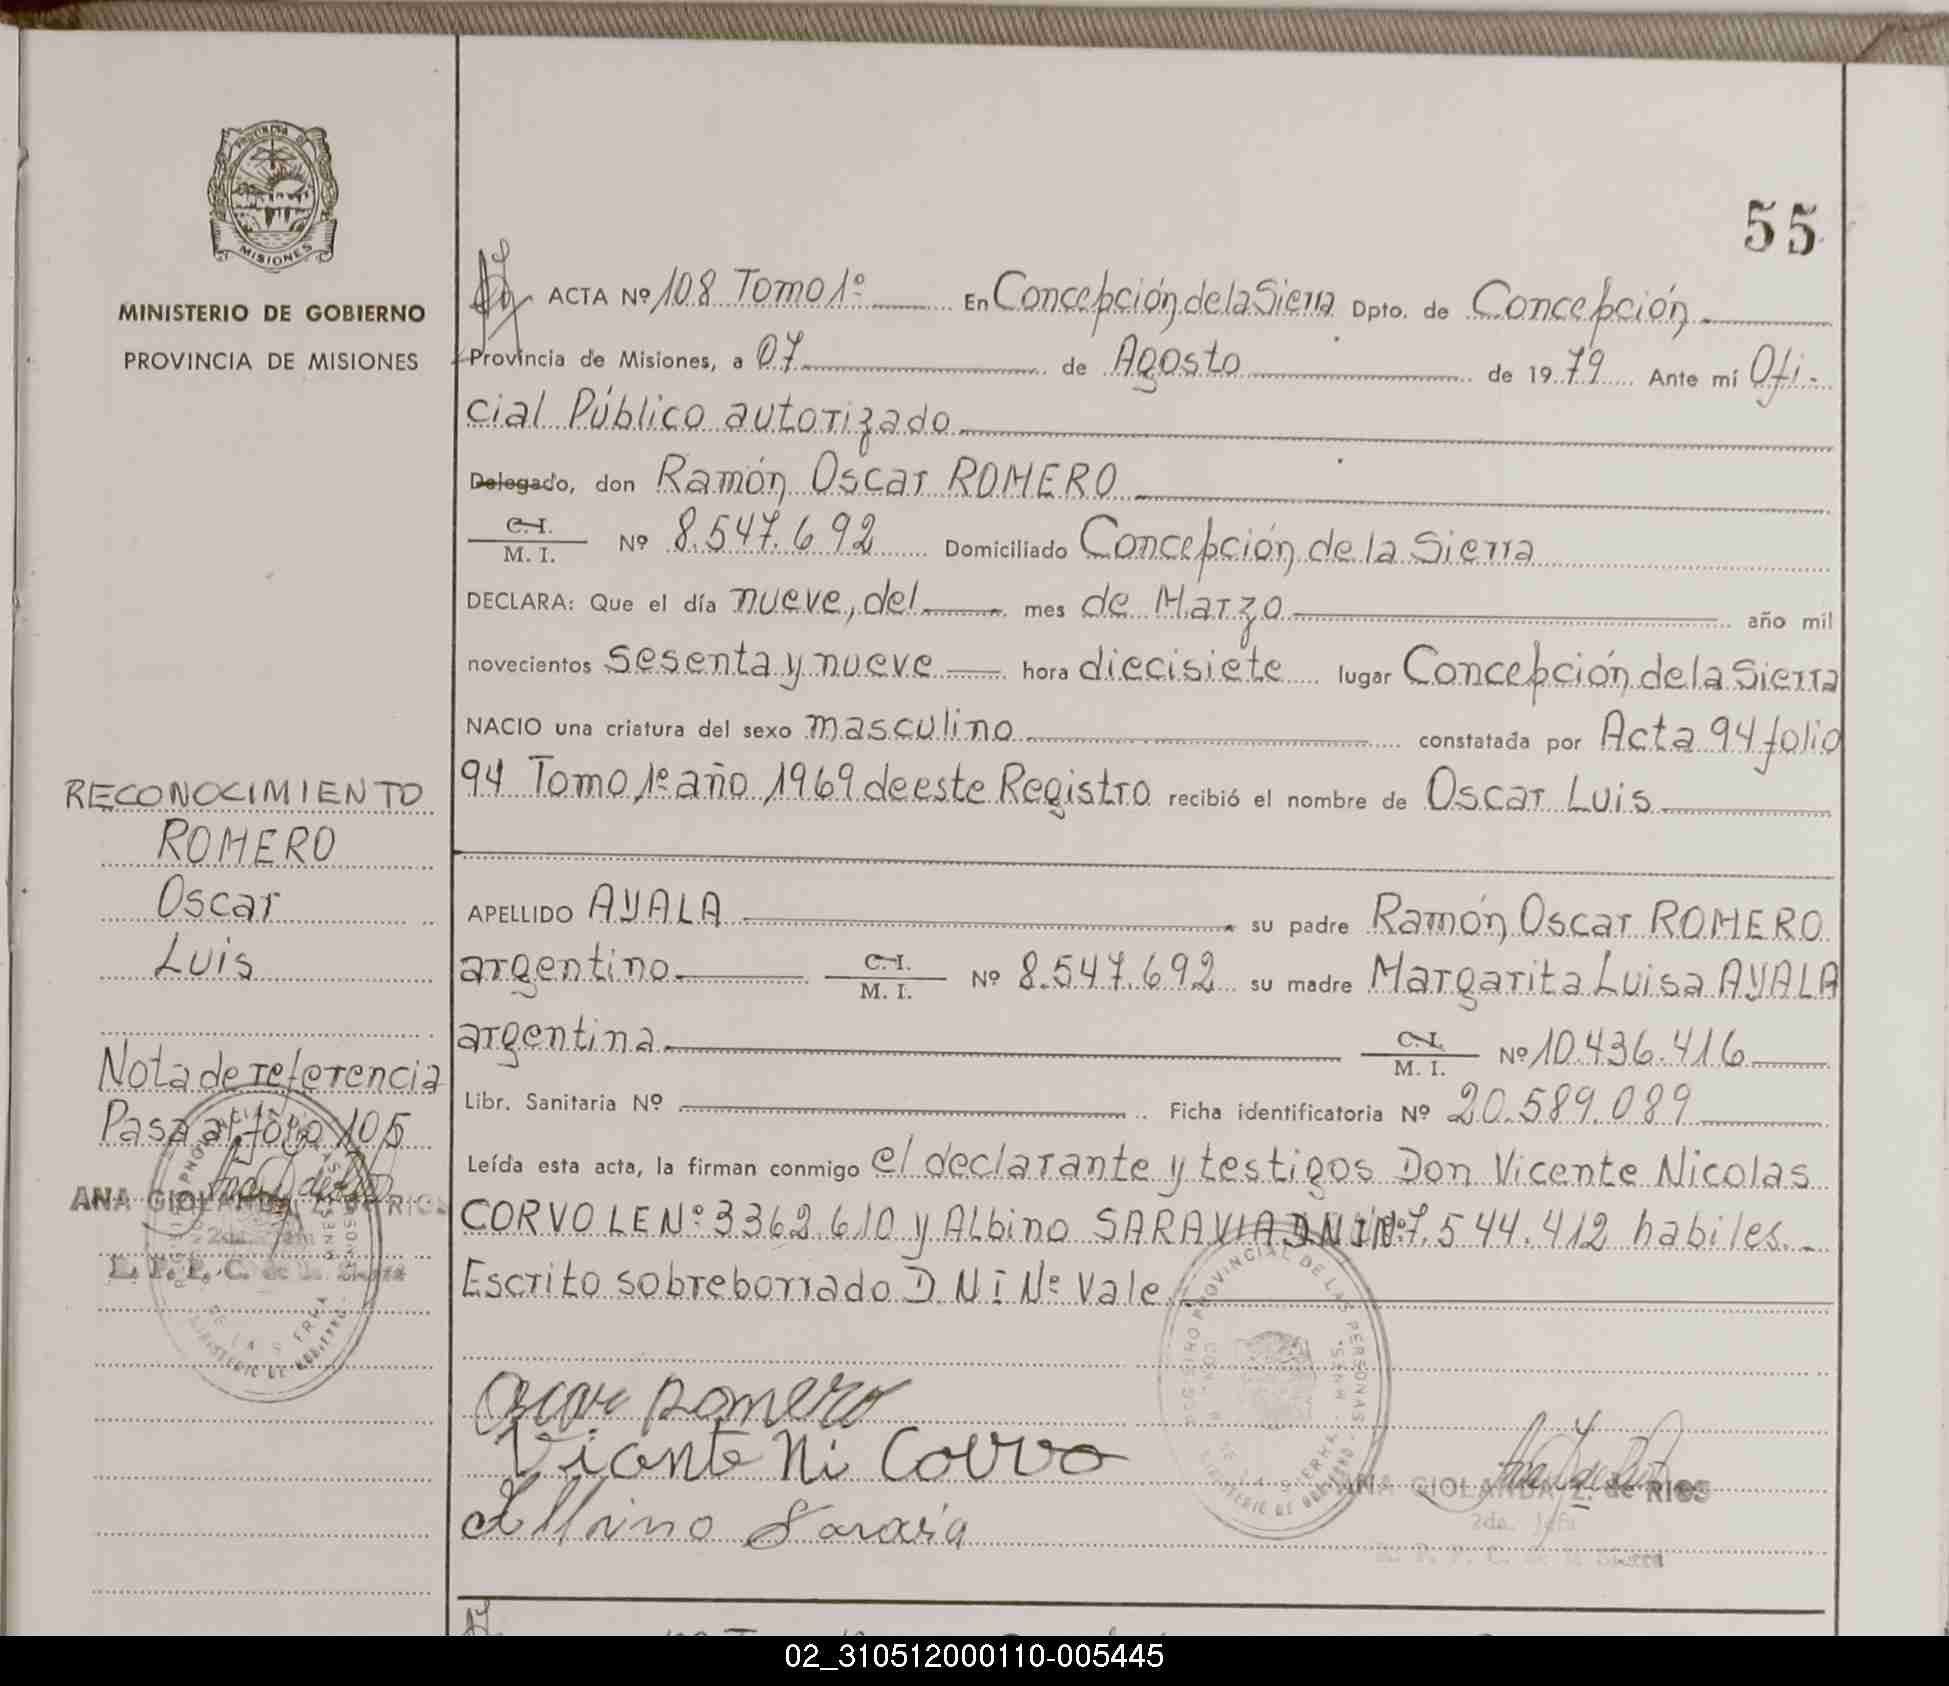 PROVINCIA DE
MISIONES
MINISTERIO DE GOBIERNO
PROVINCIA DE MISIONES
55
ACTA Nº 108 Tomo 1º En Concepción de la Sierra Dpto. de Concepción
Provincia de Misiones, a 07 de Agosto de 1979 Ante mí Ofi-
cial Público autorizado
Delegado, don Ramón Oscar ROMERO
C. I.
M. I. Nº 8.547.692 Domiciliado Concepción de la Sierra
DECLARA: Que el día nueve, del mes de Marzo año mil
novecientos sesenta y nueve hora diecisiete lugar Concepción de la Sierra
NACIO una criatura del sexo masculino constatada por Acta 94 folio
94 Tomo 1º año 1969 de este Registro recibió el nombre de Oscar Luis
APELLIDO AYALA su padre Ramón Oscar ROMERO
argentino C. I.
M. I. Nº 8.547.692 su madre Margarita Luisa AYALA
argentina C. I.
M. I. Nº 10.436.416
Libr. Sanitaria Nº Ficha identificatoria Nº 20.589.089
Leída esta acta, la firman conmigo el declarante y testigos Don Vicente Nicolas
CORVO LE Nº 3362.610 y Albino SARAVIA DNI Nº 7.544.412 habiles.-
Escrito sobreborrado D N I Nº Vale.
Oscar Romero
Vicente Ni Corvo
Albino Saravia
REGISTRO PROVINCIAL DE LAS PERSONAS
DE LA SIERRA - MNES.
MINISTERIO DE GOBIERNO
ANA GIOLANDA Z. de RIOS
2da. Jefe
R. P. P. C. de la Sierra
RECONOCIMIENTO
ROMERO
Oscar
Luis
Nota de referencia
Pasa al folio 105
ANA GIOLANDA Z. de RIOS
2da. Jefe
R. P. P. C. de la Sierra
DE LA SIERRA
MINISTERIO DE GOBIERNO
02_310512000110-005445